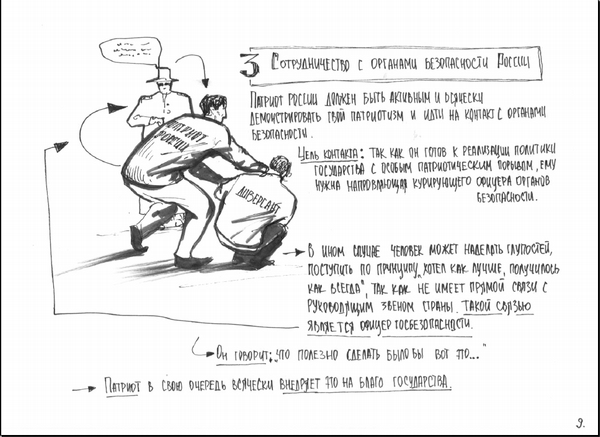 3 Сотрудничество с органами безопасности России
Патриот России должен быть активным и всячески
демонстрировать твой патриотизм и идти на контакт с органами
безопасности.
Цель контакта: так как он готов к реализации политики
государства с особым патриотическим порывом, ему
нужна направляющая курирующего офицера органов
безопасности.
Патриот
России
Диверсант
В ином случае человек может наделать глупостей,
поступить по принципу „хотел как лучше, получилось
как всегда", так как не имеет прямой связи с
руководящим звеном страны. Такой связью
является офицер госбезопасности.
Он говорит: „что полезно сделать было бы вот это..."
Патриот в свою очередь всячески внедряет это на благо государства.
9.